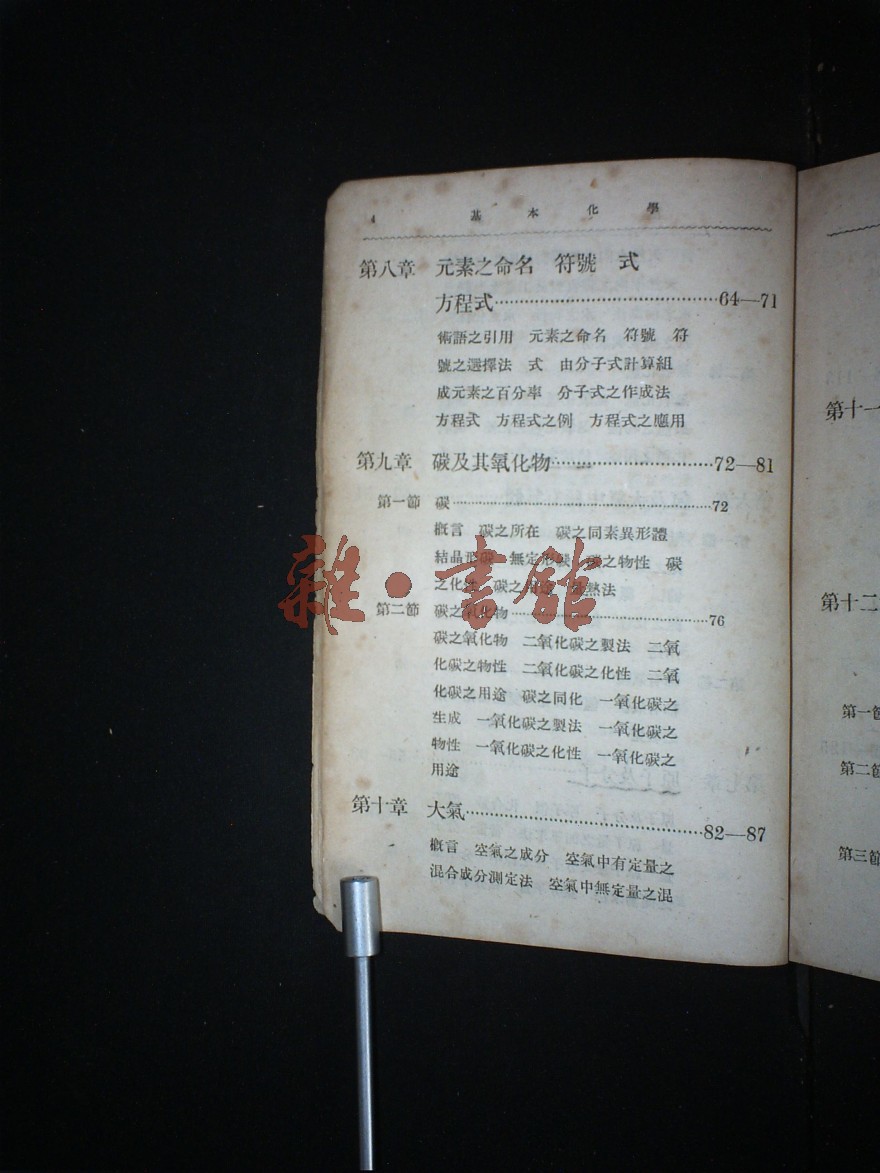 4 基本化學
第八章 元素之命名 符號 式
方程式……64—71
術語之引用 元素之命名 符號 符
號之選擇法 式 由分子式計算組
成元素之百分率 分子式之作成法
方程式 方程式之例 方程式之應用
第九章 碳及其氧化物……72—81
第一節 碳……72
概言 碳之所在 碳之同素異形體
結晶形碳 無定形碳 碳之物性 碳
之化性 碳之用途 熱法
第二節 碳之氧化物……76
碳之氧化物 二氧化碳之製法 二氧
化碳之物性 二氧化碳之化性 二氧
化碳之用途 碳之同化 一氧化碳之
生成 一氧化碳之製法 一氧化碳之
物性 一氧化碳之化性 一氧化碳之
用途
第十章 大氣……82—87
概言 空氣之成分 空氣中有定量之
混合成分測定法 空氣中無定量之混
雜·書館
第十一
第十二
第一節
第二節
第三節